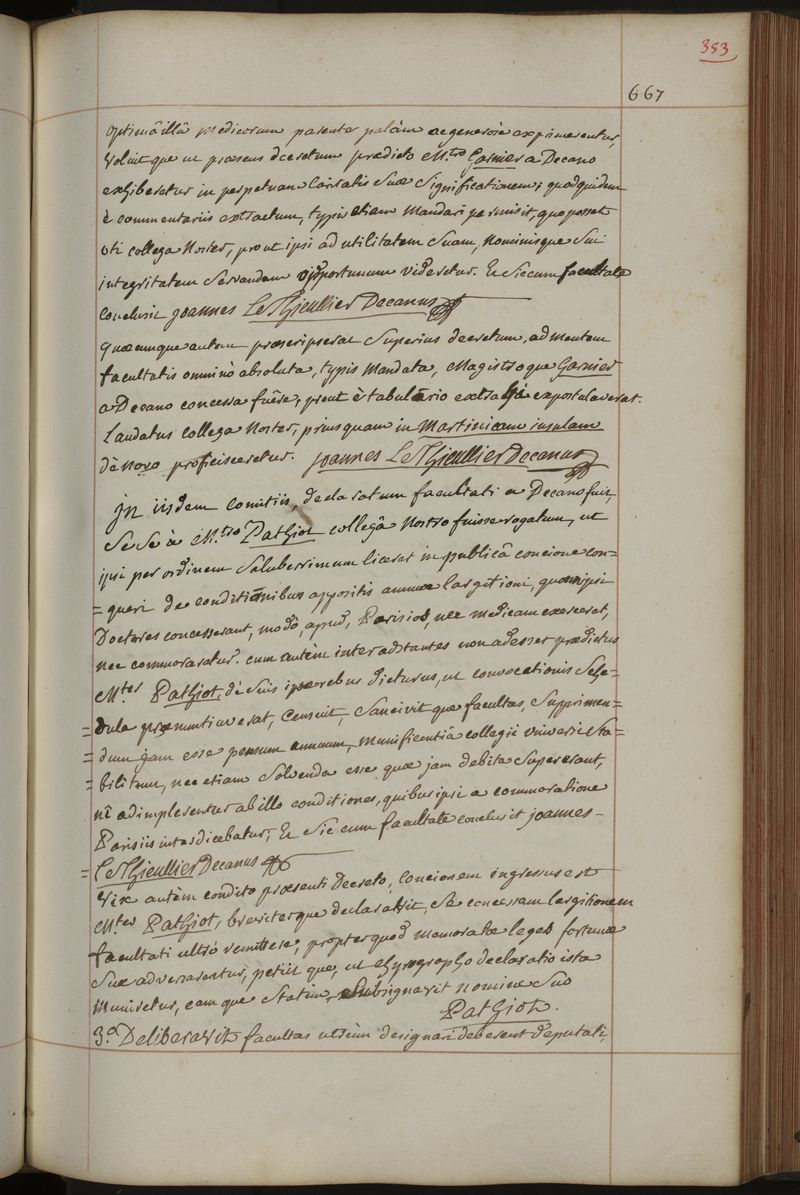 353
667
optimâ illâ medicorum parente palàm ac generosè exprimerentur,
Voluit que ut praesens decretum praedicto M.tro Garnier a Decano
exhiberetur in perpetuam Caritatis Suae Significationem; quod quidem
è commentariis extractum, typis etiam Mandari permisit, quo posset
uti collega Noster, prout ipsi ad utilitatem Suam, Nominisque Sui
integritatem Servandam opportunum videretur. Et Sic cum facultate
Conclusit joannes Le Thieullier Decanus
quaecumque autem praescripserat Superius decretum, ad mentem
facultatis omninò absoluta, typis Mandata, Magistro que Garnier
a Decano concessa fuêre, prout è tabulario extrahi expostulaverat.
Laudatus collega Noster, priusquam in Martinicam insulam
dè Novo proficisceretur. joannes Le Thieullier Decanus
jn iisdem Comitiis, declaratum facultati a Decano fuit,
Se Se à M.tro Pathiot collegâ Nostro fuisse rogatum, ut
ipsi per ordinem Saluberrimum liceret in publicâ concione con=
= queri de conditionibus appositis annuae largitioni, quam ipsi
Doctores concesserant, modò, apud, Parisios, nec medicam exerceret,
nec commoraretur. cum autèm inter adstantes non adesset praedictus
M.ter Pathiot, dè Suis ipse rebus dicturus, ut convocationis Sche=
= dula praenuntiaverat, Censuit, Sancivit que facultas, Supprimen=
= dum jam esse pensum annuum, munificentiâ collegii universi Sta=
= bilitum, nec etiam Solvenda esse quae jam debita Supererant,
nî adimplerentur ab illo conditiones, quibus ipsi a commoratione
Parisiis interdicebatur; Et Sic cum facultate conclusit joannes -
= Le Thieullier Decanus
Vix autèm condito praesenti Decreto, Concionem ingressus est
M.ter Pathiot, breviterque declaravit, Se concessam largitionem
facultati ultrò remittere, propter quod memoratae leges fortunae
Suae adversarentur, petiit que, ut chyrographo declaratio ista
Muniretur, eam que Statim Subsignavit nomine Suo
Pathiot.
3.o Deliberavit facultas utrùm designari deberent deputati,